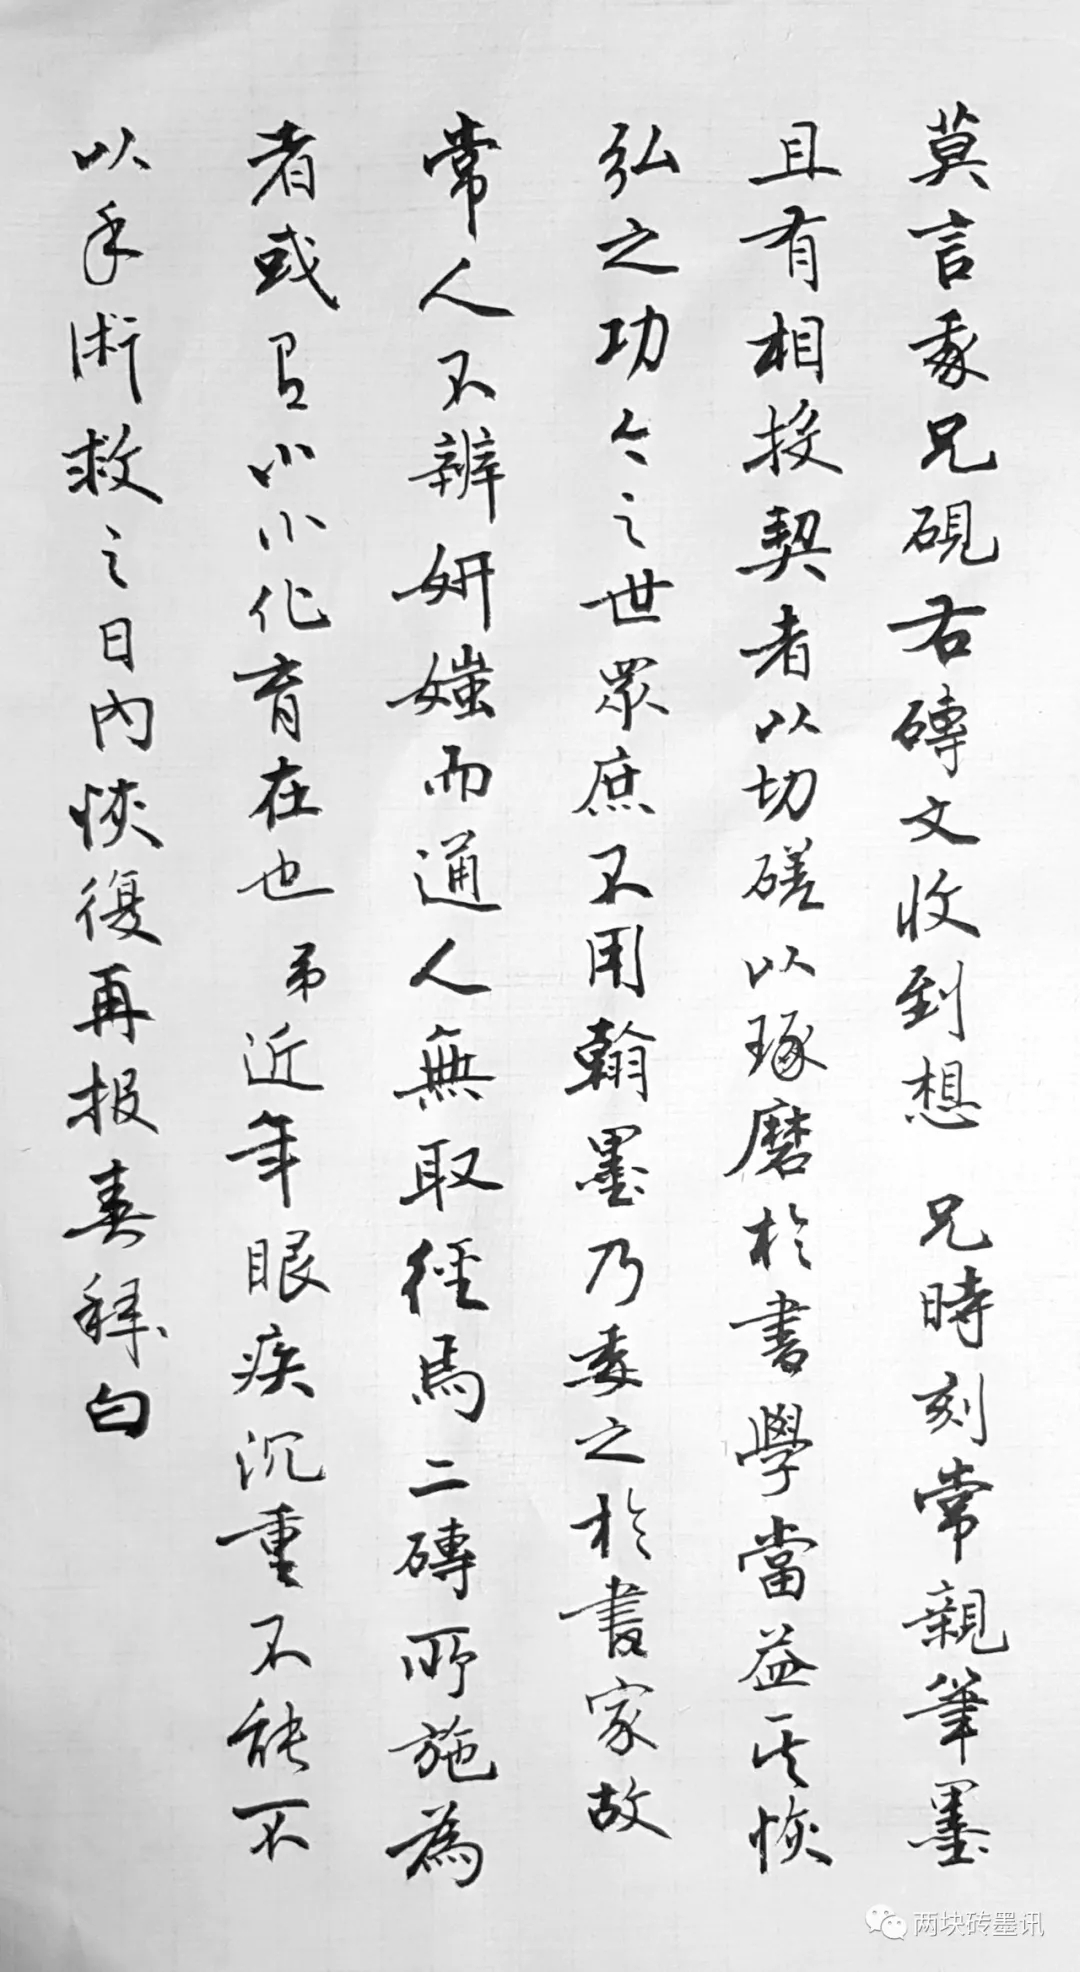 莫言家兄硯右磚文收到想 兄時刻常親筆墨
且有相投契者以切磋以琢磨於書學當益其恢
弘之功今之世眾庶不用翰墨乃委之於書家故
常人不辨妍媸而通人無取徑焉二磚所施為
者或有小小化育在也弟近年眼疾沉重不能不
以手術救之日內恢復再报春拜白
两块砖墨讯